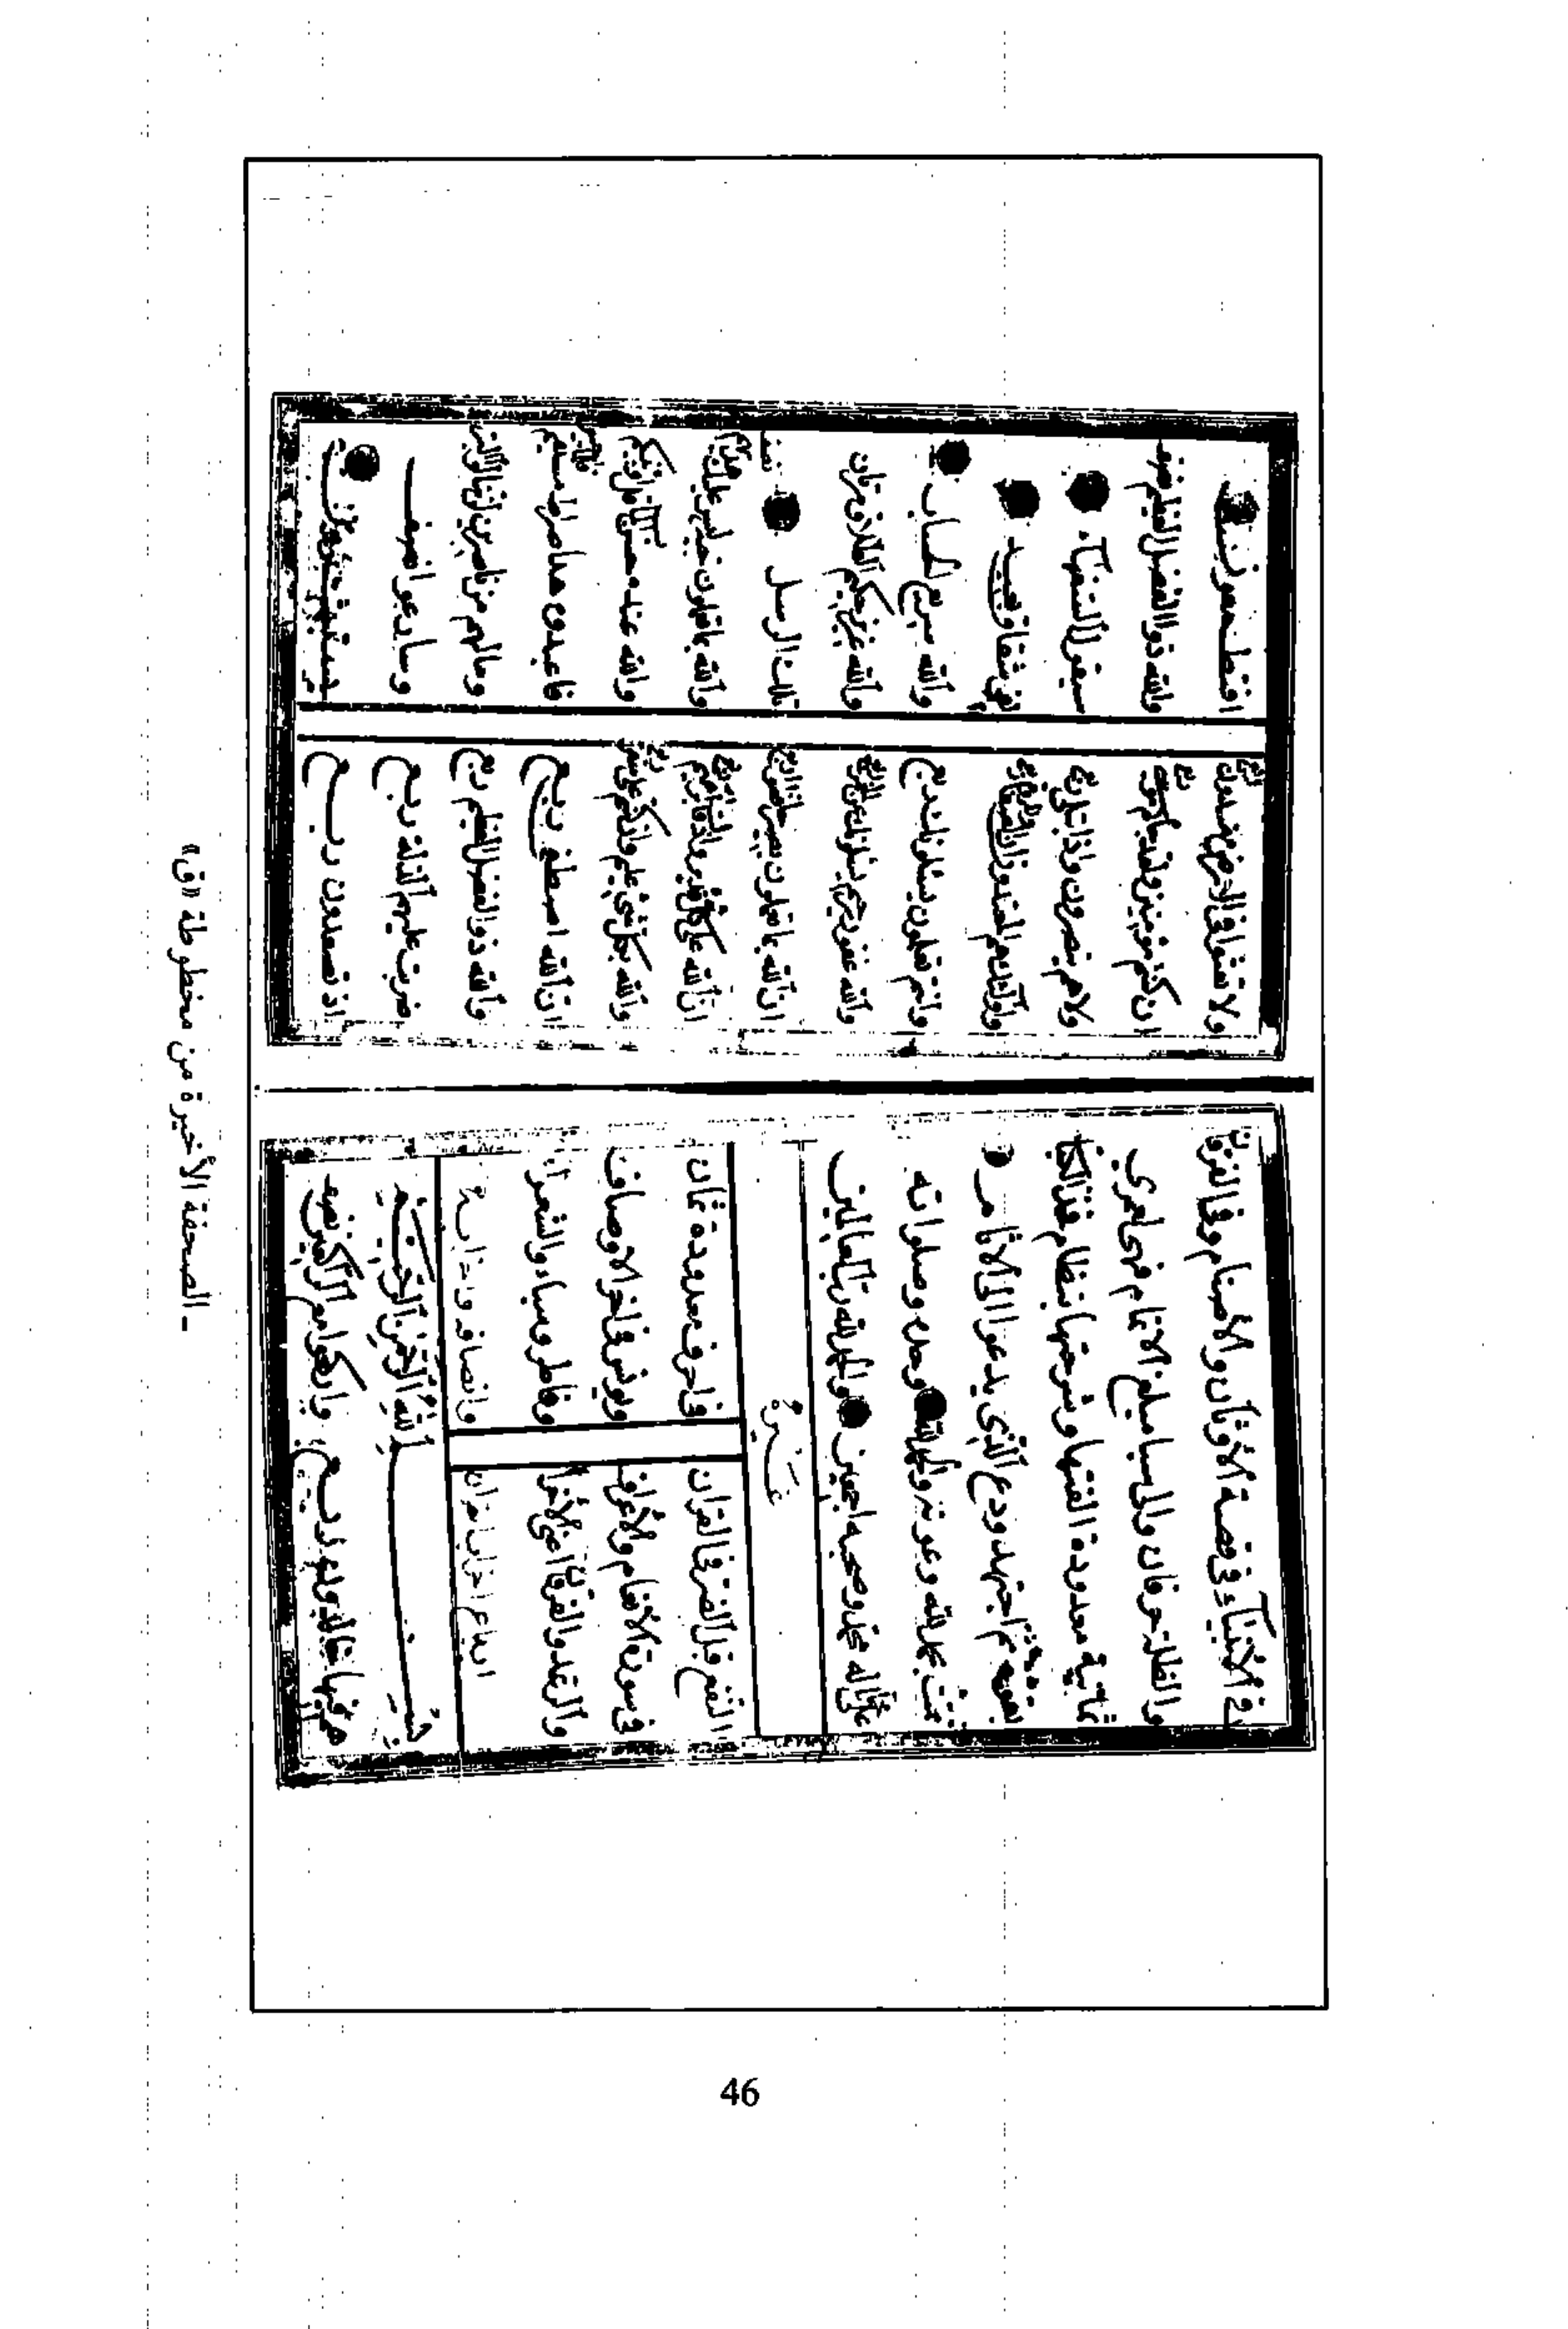 في الأنبياء وفي قصة الأوثان والأصنام وفي الفرقان
حرفان والى سبا مبلغ الاتمام فهي لعمري
ثمانية معدودة الفتها وشرحتها بنظام
بعونه ثم اجتهد ودع الذي يدعو الى الاثام
تمت بحمد الله وعونه والحمد لله وحده وصلواته
على محمد وآله وصحبه اجمعين والحمد لله رب العالمين
النفع قبل الضر في القران في احرف معدودة ثمان
في سورة الانعام والاعراف ويونس في اخر الاوصاف
والرعد والفرقان اعني الاخرا وفاطر وسباء والشعرا
ارباع احزاب القران وانصافه
بسم الله الرحمن الرحيم
هم فيها خالدون ربع واركعوا مع الراكعين نصف
ولا تعثوا في الارض مفسدين ربع افتطمعون
ان كنتم مؤمنين ولقد جاءكم موسى ربع والله ذو الفضل العظيم نصف
ولا هم ينصرون واذ ابتلى ربع سيقول السفهاء
لفي شقاق بعيد
وانتم تعلمون يسئلونك ربع والله سريع الحساب
والله غفور رحيم يسئلونك عن الخمر ربع والله عزيز حكيم الطلاق مرتان
ان الله بما تعملون بصير تلك الرسل
ان الله على كل شيء قدير والله بما تعملون خبير ليس عليك هديهم
والله بكل شيء عليم وان كنتم على سفر ربع والله عنده حسن المآب قل اؤنبئكم
ان الله اصطفى ربع فاعبدوه هذا صراط مستقيم
والله ذو الفضل العظيم ربع وما لهم من ناصرين لن تنالوا البر
ضربت عليهم الذلة ربع وسارعوا نصف
اذ تصعدون ربع يستبشرون
ـ الصحفة الأخيرة من مخطوطة «ق»
46